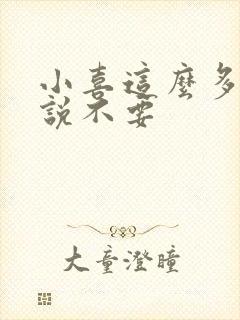 小喜這麼多
說不要
大童澄瞳